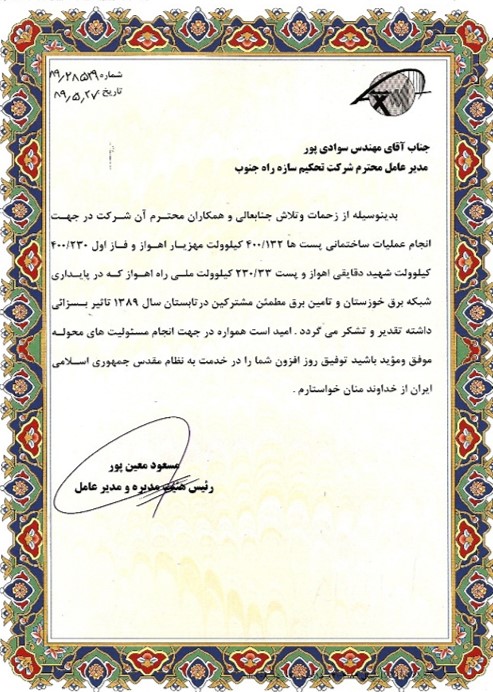 شماره ۸۹/۲۸۵۲۹
تاریخ: ۸۹/۵/۲۷
جناب آقای مهندس سوادی پور
مدیر عامل محترم شرکت تحکیم سازه راه جنوب
بدینوسیله از زحمات وتلاش جنابعالی و همکاران محترم آن شرکت در جهت
انجام عملیات ساختمانی پست ها ۴۰۰/۱۳۲ کیلوولت مهزیار اهواز و فاز اول ۴۰۰/۲۳۰
کیلوولت شهید دقایقی اهواز و پست ۲۳۰/۳۳ کیلوولت ملی راه اهواز که در پایداری
شبکه برق خوزستان و تامین برق مطمئن مشترکین درتابستان سال ۱۳۸۹ تاثیر بسزائی
داشته تقدیر و تشکر می گردد . امید است همواره در جهت انجام مسئولیت های محوله
موفق ومؤید باشید توفیق روز افزون شما را در خدمت به نظام مقدس جمهوری اسلامی
ایران از خداوند منان خواستارم .
مسعود معین پور
رئیس هیئت مدیره و مدیر عامل